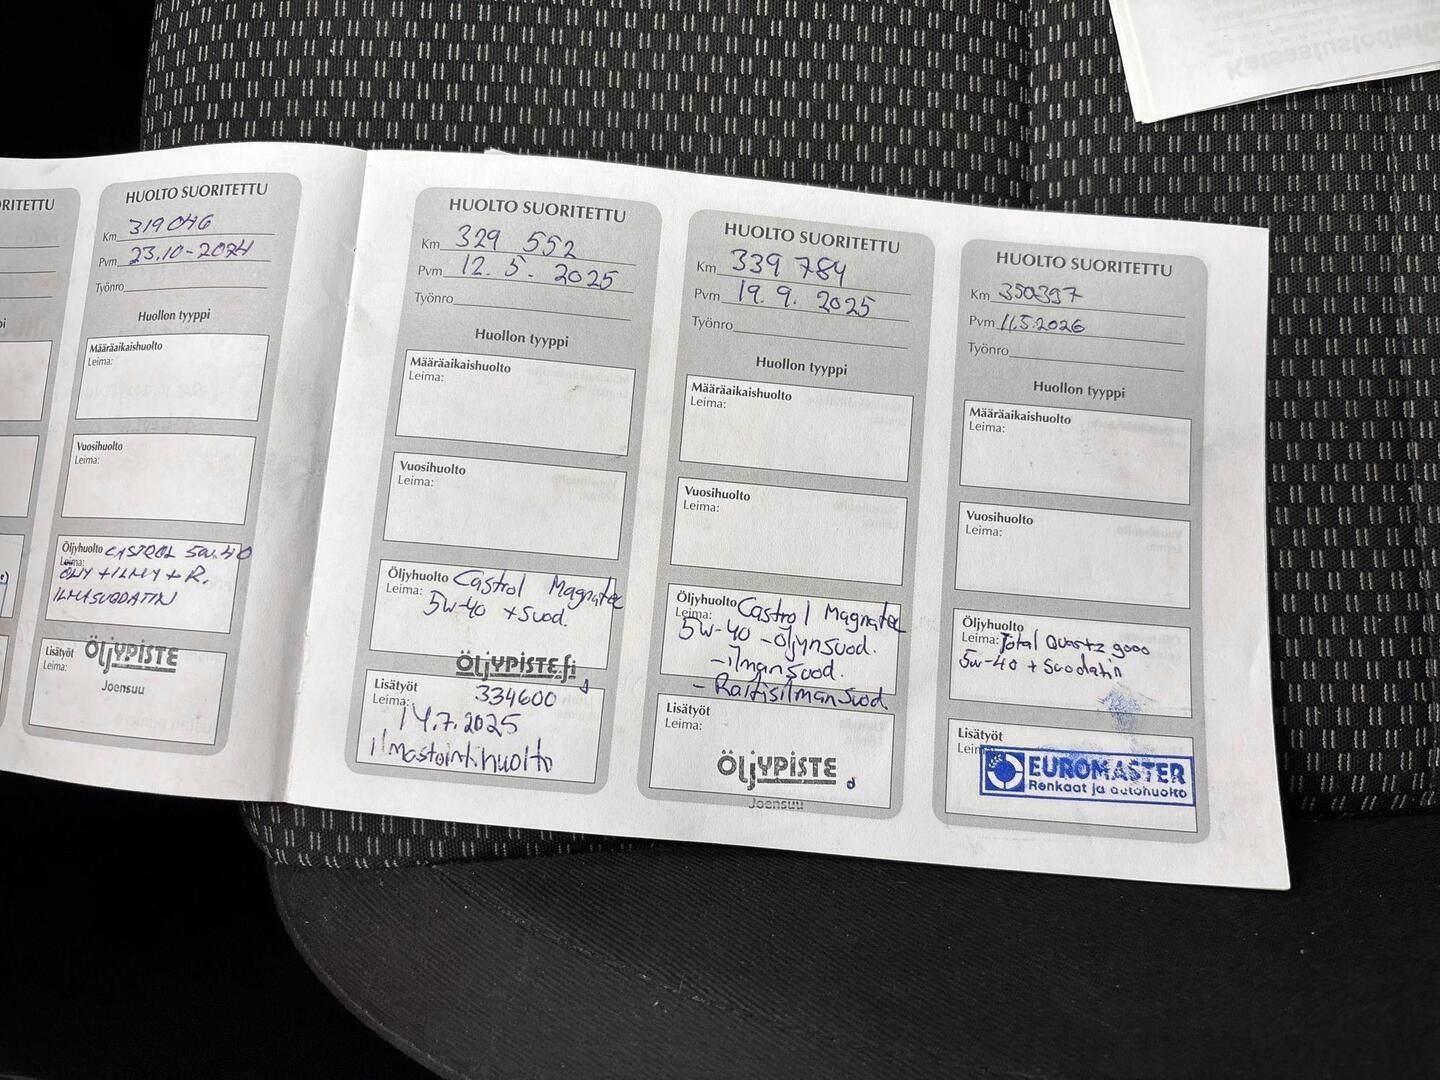 ORITETTU
pi
HUOLTO SUORITETTU
Km 319046
Pvm 23.10-2024
Työnro
Huollon tyyppi
Määräaikaishuolto
Leima:
Vuosihuolto
Leima:
Öljyhuolto CASTROL 5W-40
Leima: ÖLJY + ILMA + R.
ILMASUODATIN
Lisätyöt
Leima:
ÖLJYPISTE
Joensuu
HUOLTO SUORITETTU
Km 329 552
Pvm 12. 5. 2025
Työnro
Huollon tyyppi
Määräaikaishuolto
Leima:
Vuosihuolto
Leima:
Öljyhuolto Castrol Magnatec
Leima: 5w-40 + suod.
ÖLJYPISTE.fi
Lisätyöt 334600
Leima: 14.7.2025
ilmastoint.huolto
HUOLTO SUORITETTU
Km 339 784
Pvm 19. 9. 2025
Työnro
Huollon tyyppi
Määräaikaishuolto
Leima:
Vuosihuolto
Leima:
Öljyhuolto Castrol Magnatec
Leima: 5W-40 -öljynsuod.
-ilmansuod.
- Raitisilmansuod.
Lisätyöt
Leima:
ÖLJYPISTE
Joensuu
HUOLTO SUORITETTU
Km 350397
Pvm 11.5.2026
Työnro
Huollon tyyppi
Määräaikaishuolto
Leima:
Vuosihuolto
Leima:
Öljyhuolto
Leima: Total Quartz 9000
5w-40 + Suodatin
Lisätyöt
Leim
EUROMASTER
Renkaat ja autohuolto